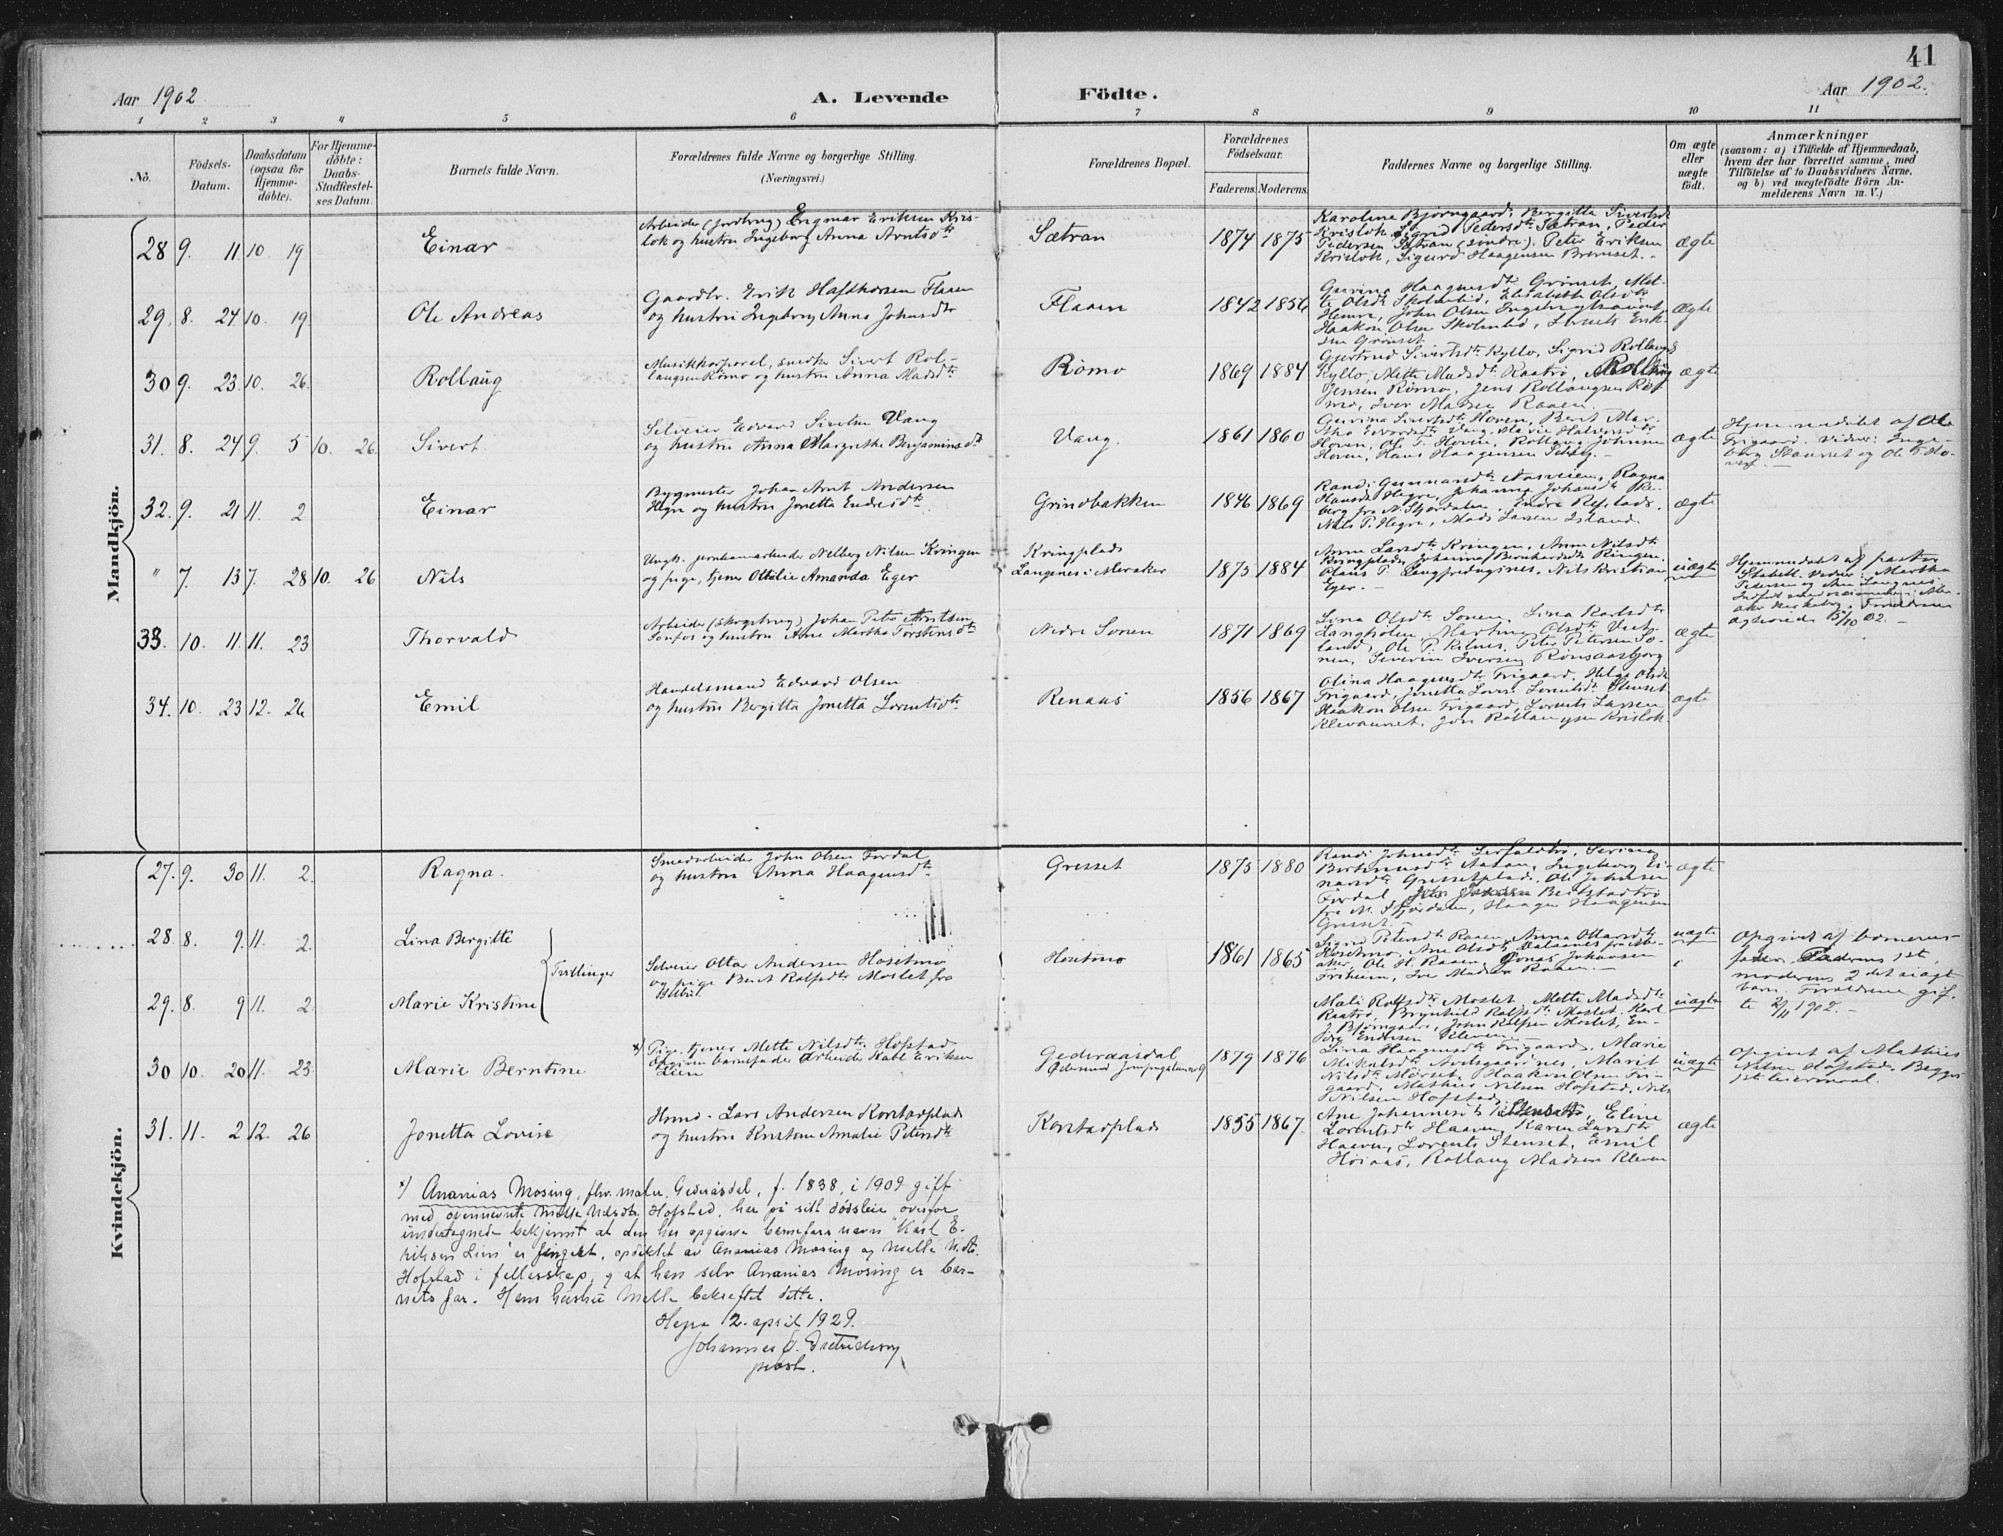 41
Aar 1902
A. Levende
Födte.
Aar 1902.
1 2 3 4 5 6 7 8 9 10 11
No.
Födsels-
Datum.
Daabsdatum
(ogsaa for
Hjemme-
döbte).
For Hjemme-
döbte:
Daabs-
Stadfestel-
ses Datum.
Barnets fulde Navn.
Forældrenes fulde Navne og borgerlige Stilling.
(Næringsvei.)
Forældrenes Bopæl.
Forældrenes
Födselsaar.
Faderens. Moderens.
Faddernes Navne og borgerlige Stilling.
Om ægte
eller
uægte
födt.
Anmærkninger
(saasom: a) i Tilfælde af Hjemmedaab,
hvem der har forrettet samme, med
Tilföielse af to Daabsvidners Navne,
og b) ved uægtefödte Börn An-
melderens Navn m. V.)
Mandkjön.
28 9. 11 10 19 Einar
Arbeider (jordbrug) Engmar Eriksen Kris-
lok og hustru Ingeborg Anna Arntsdtr
Sætran
1874 1875
Karoline Bjørngaard, Bergitta Sivertsdtr
Krislok, Sigrid Pedersdtr Sætran, Peder
Pedersen Sætran (søndre), Peter Eriksen
Krislok, Sigurd Haagensen
ægte
29. 8. 24 10. 19. Ole Andreas
Gaardbr. Erik Hafthorsen Flaaen
og hustru Ingeborg Anna Johnsdtr
Flaaen
1842 1856
Gurina Haagensdtr Grønset,
Olsdtr Skolmlid, Elisabeth Olsdtr
John Olsen
Haakon Olsen Skolmlid, Lornts Erik-
sen Grønset
Ægte
30 9. 23 10. 26. Rollaug
Musikkorporal, smed Sivert Rol-
laugsen Rømo og hustru Anna Madsdtr
Rømo
1869 1884
Gjertrud Sivertsdtr Kyllo, Sigrid Rollaugsd
Kyllo, Mette Madsdtr Raatrø, Rollaug
Jensen Rømo, Jens Rollaugsen Rø-
mo, Iver Madsen Raaen.
ægte
31. 8. 24 9. 5 10. 26. Sivert
Selveier Edvard Sivertsen Vang
og hustru Anna Margrethe Benjaminsdtr
Vang.
1861 1860
Gurina Sivertsdtr Hoven, Berit Mar-
tha Edvardsdtr Vang, Marie Halvorsdtr
Hoven, Ole T. Hoven, Rollaug Johnsen
Hoven, Hans Haagensen
ægte
Hjemmedøbt af Ole
Trigaard. Vidner: Inge-
borg og Ole T. Ho-
ven. —
32. 9. 21 11. 2 Einar
Bygmester Johan Arnt Andersen
Hegre og hustru Jonetta Endresdtr
Grindbakken
1846 1869
Randi Gunnarsdtr Aasveien, Ragna
Hansdtr Hegre, Johanna Johansdtr
berg fra N. Stjørdalen, Endre
Nils P. Hegre, Mads Larsen
ægte
" 7. 13 7. 28 10. 26 Nils
Ungk. jernbanearbeider Nelberg Nilsen Kringen
og pige, tjener Ottilie Amanda Eger
Kringplads
Langenes i Meraker
1875 1884
Anne Larsdtr Kringen, Anne Nilsdtr
Kringplads, Johanna Bernhardsdtr Ringen,
Klaus P. Nils Kristian
Eger. —
uægte
Hjemmedøbt af pastor
Stabell. Vidner: Martha
Pedersen og Ane Langnes.
Forældrene
ægteviede 15/10 02. —
33. 10. 11 11. 23 Thorvald
Arbeider (skogsbrug) Johan Peter Arntsen
Sonfos og hustru Ane Martha Torstensdtr
Nedre Sonen
1871 1869
Lina Olsdtr Sonen, Lina Karlsdtr
Langholen, Martine Olsdtr Veit-
land, Ole P. Kilnes, Peter Petersen So-
nen, Severin Iversen Rønsaasbjørg
ægte
34. 10. 23 12. 26 Emil
Handelsmand Edvard Olsen
og hustru Bergitta Jonetta Lorentsdtr
Renaas
1856 1867
Olina Haagensdtr Trigaard, Helga Olsdtr
Trigaard, Jonetta Lovise Lorntsdtr Stenset
Haakon Olsen Trigaard, Lornts Larsen
Klevaunet, Jon Rollaugsen Krislok
ægte
Kvindekjön.
27. 9. 30 11. 2. Ragna.
Smedarbeider John Olsen Fordal
og hustru Anna Haagensdtr
Gresset
1875 1880
Randi Johnsdtr
Aasan, Ingeborg Ei-
narsdtr Gressetplads, Ole Johnsen
Fordal, Beitstadtrø
fra N. Stjørdalen, Haagen Haagensen
Gresset. —
ægte
28. 8. 9 11. 2. Lina Bergitte
Tvillinger
Selveier Ottar Andersen Hosetmo
og pige Berit Rolfsdtr Moslet fra
Hosetmo
1861 1865
Sigrid Petersdtr Raaen, Anna Ottarsdtr
Hosetmo, Ane Olsdtr Dalaanes fra Me-
aker, Ole H. Raaen, Jonas Johansen
Friheim, Iver Madsen Raaen. —
uægte
Opgivet af barnenes
fader. Faderens 1ste,
moderens 2det uægte
barn. Forældrene gif-
te 2/11 1902. —
29. 8. 9 11. 2. Marie Kristine
Mali Rolfsdtr Moslet, Mette Madsdtr
Raatrø, Brynhild Rolfsdtr Moslet, Karl
J. Bjørngaard, John Rolfsen Moslet, En-
Endresen
uægte
30 10. 20 11. 23 Marie Berntine
*) Pige, tjener Mette Nilsdtr Hofstad
Opgiven barnefader Arbeider Karl Eriksen
Lien
Gederaasdal
1879 1876
Lina Haagensdtr Trigaard, Marie
Mikalsdtr Marit
Nilsdtr Mørset, Haakon Olsen Tri-
gaard, Mathias Nilsen Hofstad, Nils
Nilsen Hofstad
uægte
Opgivet af Mathias
Nilsen Hofstad. Begges
1ste leiermaal.
31. 11. 2 12. 26 Jonetta Lovise
Hmd. Lars Andersen Korstadplads
og hustru Kristine Amalie Petersdtr
Korstadplads
1855 1867
Ane Johannesdtr Stenset, Eline
Lorentsdtr Haaven, Karen Larsdtr
Haaven, Lorents Stenset, Emil
Høiaas, Rollaug Madsen Kleven
ægte
*) Ananias Mosing, fhv. maler, Gederåsdal, f. 1838, i 1909 gift
med ovennevnte Mette Nilsdtr. Hofstad, har på sitt dødsleie overfor
undertegnede bekjennt at den her opgivne barnefars navn "Karl E-
riksen Lien" er fingert, opdiktet av Ananias Mosing og Mette N.dtr.
Hofstad i fellesskap, og at han selv Ananias Mosing er bar-
nets far. Hans hustru Mette bekreftet dette.
Hegra 12. april 1929.
Johannes Ø. Dietrichson
prost.